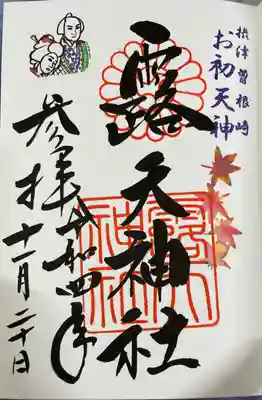 摂津曽根崎
お初天神
露天神社
参拝令和四年
十一月二十日